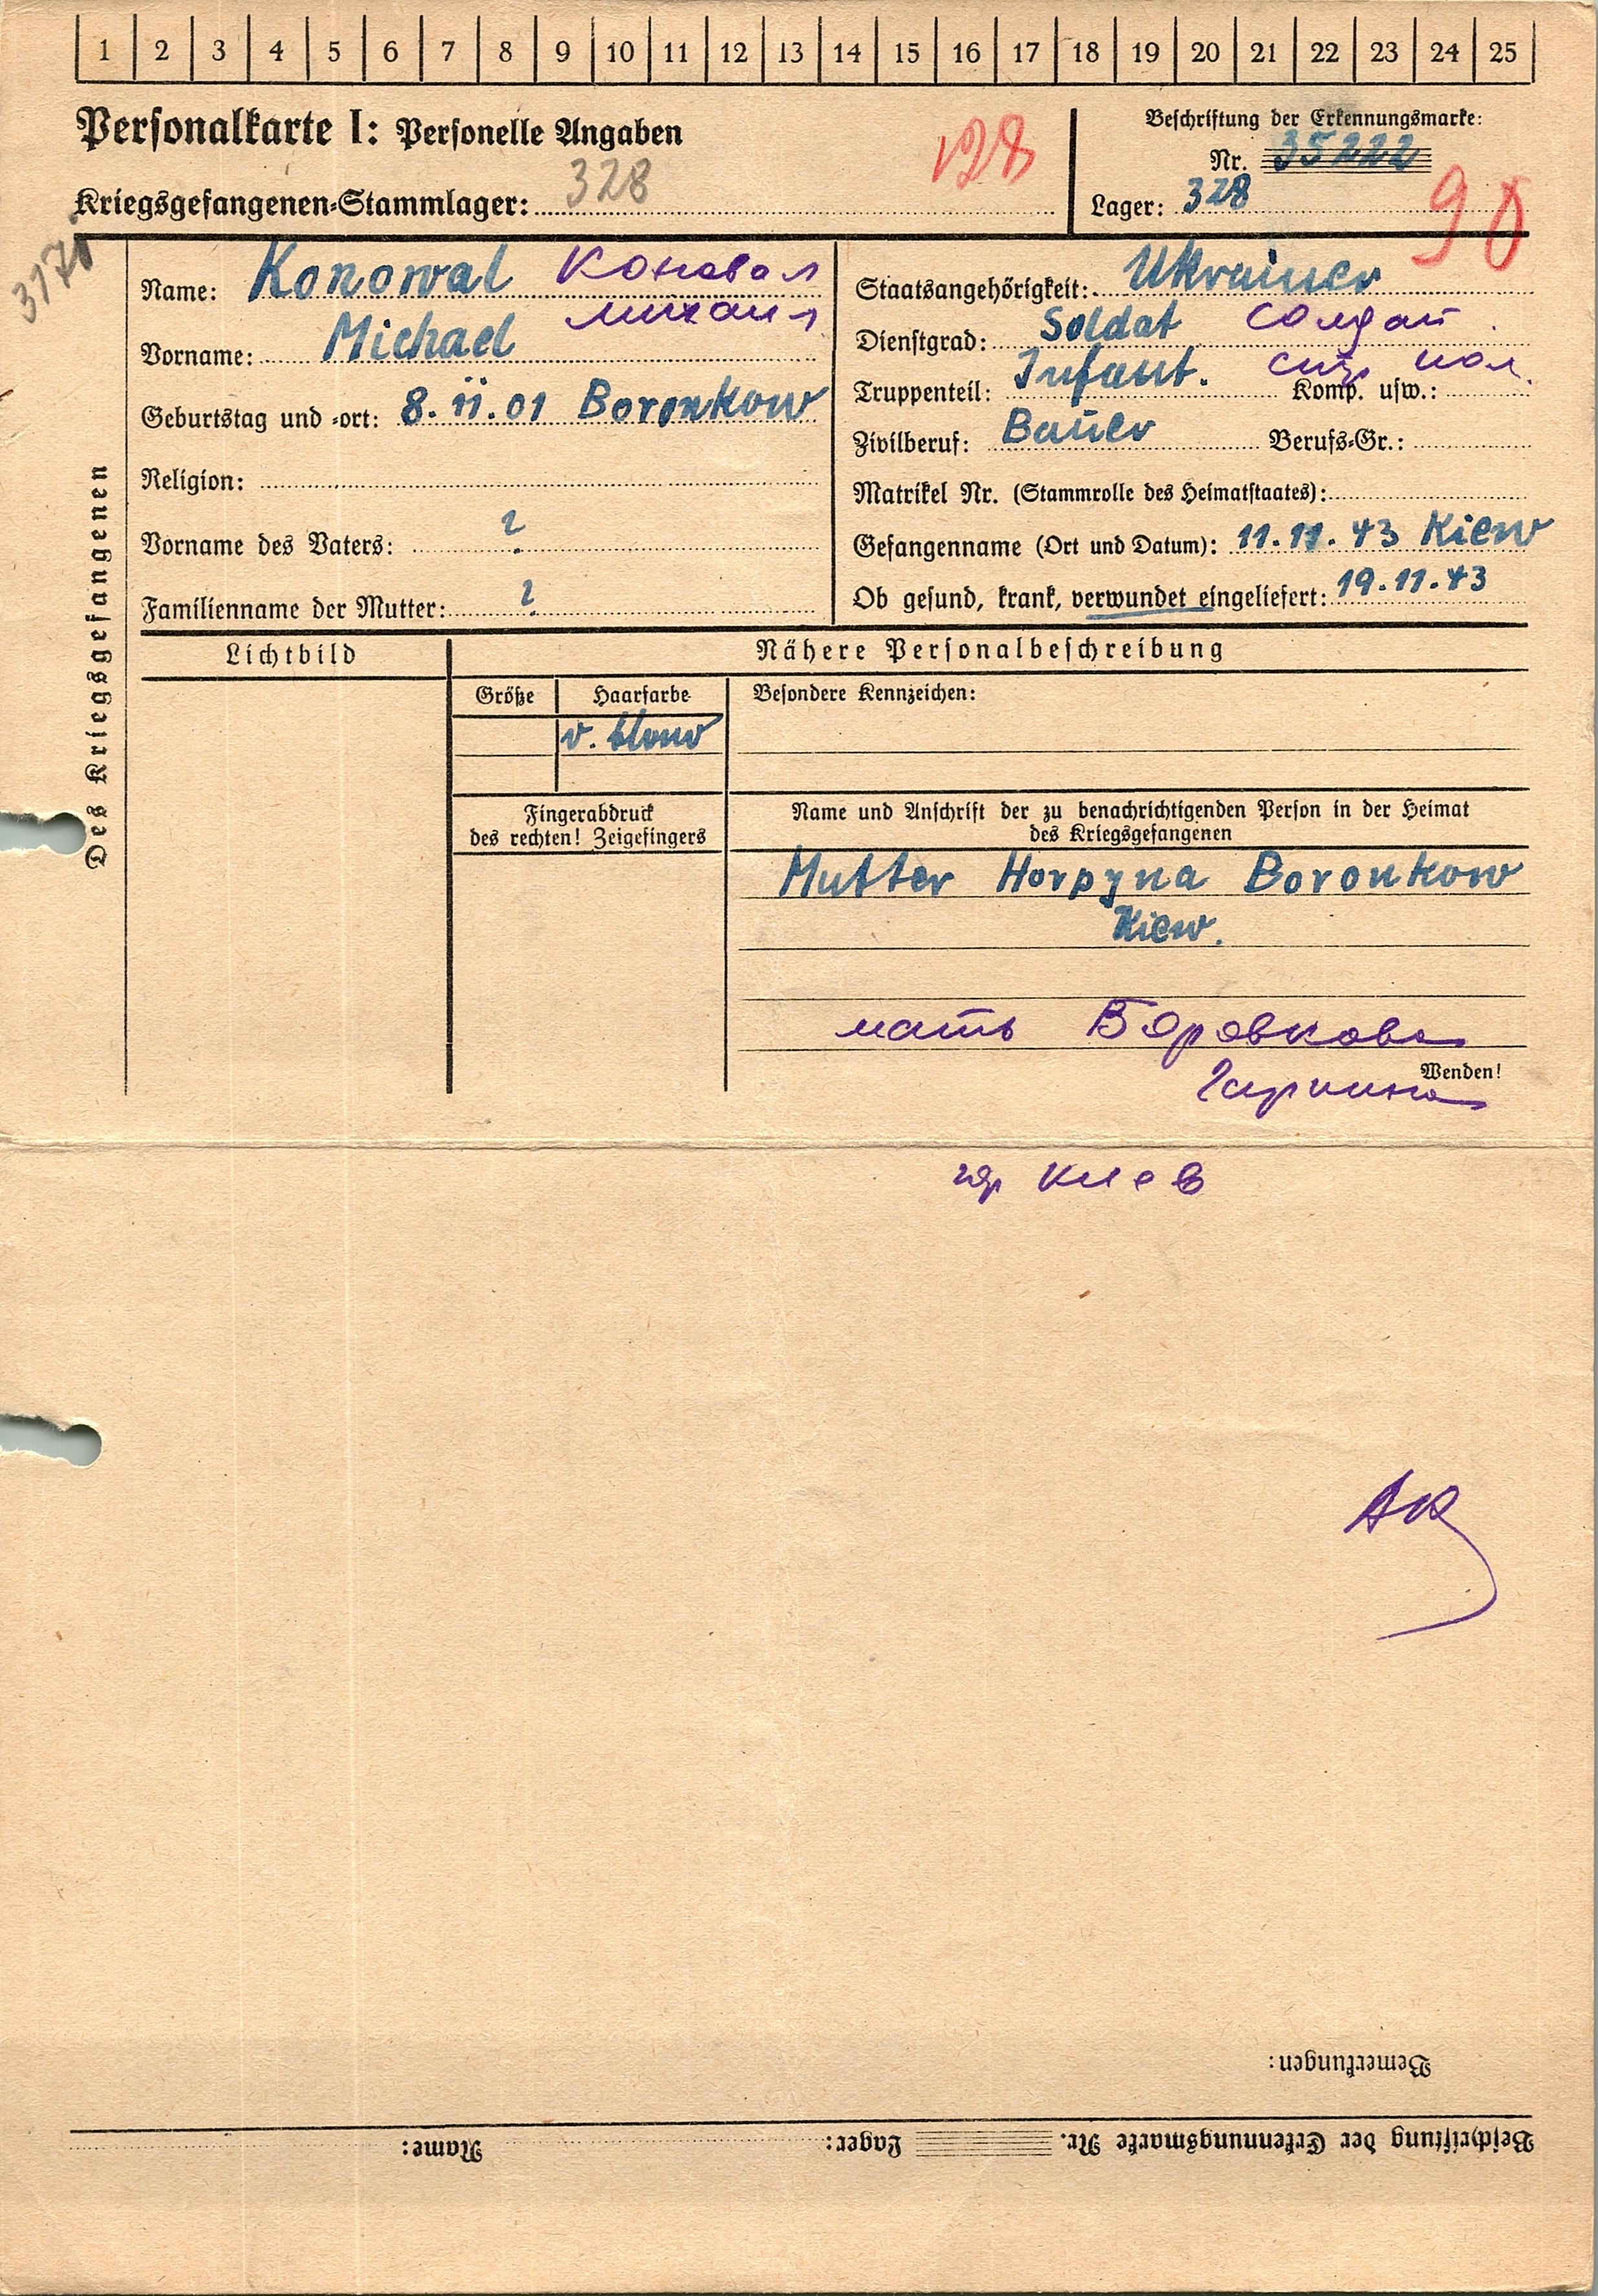 1 2 3 4 5 6 7 8 9 10 11 12 13 14 15 16 17 18 19 20 21 22 23 24 25
Personalkarte I: Personelle Angaben
128
Beschriftung der Erkennungsmarke:
Nr. 35222
Kriegsgefangenen-Stammlager: 328
Lager: 328
90
Des Kriegsgefangenen
Name: Konowal Коновал
Михаил
Vorname: Michael
Geburtstag und -ort: 8.11.01 Boronkow
Religion:
Vorname des Vaters: ?
Familienname der Mutter: ?
Staatsangehörigkeit: Ukrainer
Dienstgrad: Soldat Солдат
Truppenteil: Infant. Komp. usw.:
Zivilberuf: Bauer Berufs-Gr.:
Matrikel Nr. (Stammrolle des Heimatstaates):
Gefangenname (Ort und Datum): 11.11.43 Kiew
Ob gesund, krank, verwundet eingeliefert: 19.11.43
Lichtbild
Nähere Personalbeschreibung
Größe Haarfarbe Besondere Kennzeichen:
Fingerabdruck
des rechten! Zeigefingers
Name und Anschrift der zu benachrichtigenden Person in der Heimat
des Kriegsgefangenen
Mutter Horpyna Boronkow
Kiew.
мать Боровкова
Wenden!
гор Киев
Bemerkungen:
Beschriftung der Erkennungsmarke Nr. Lager: Name: